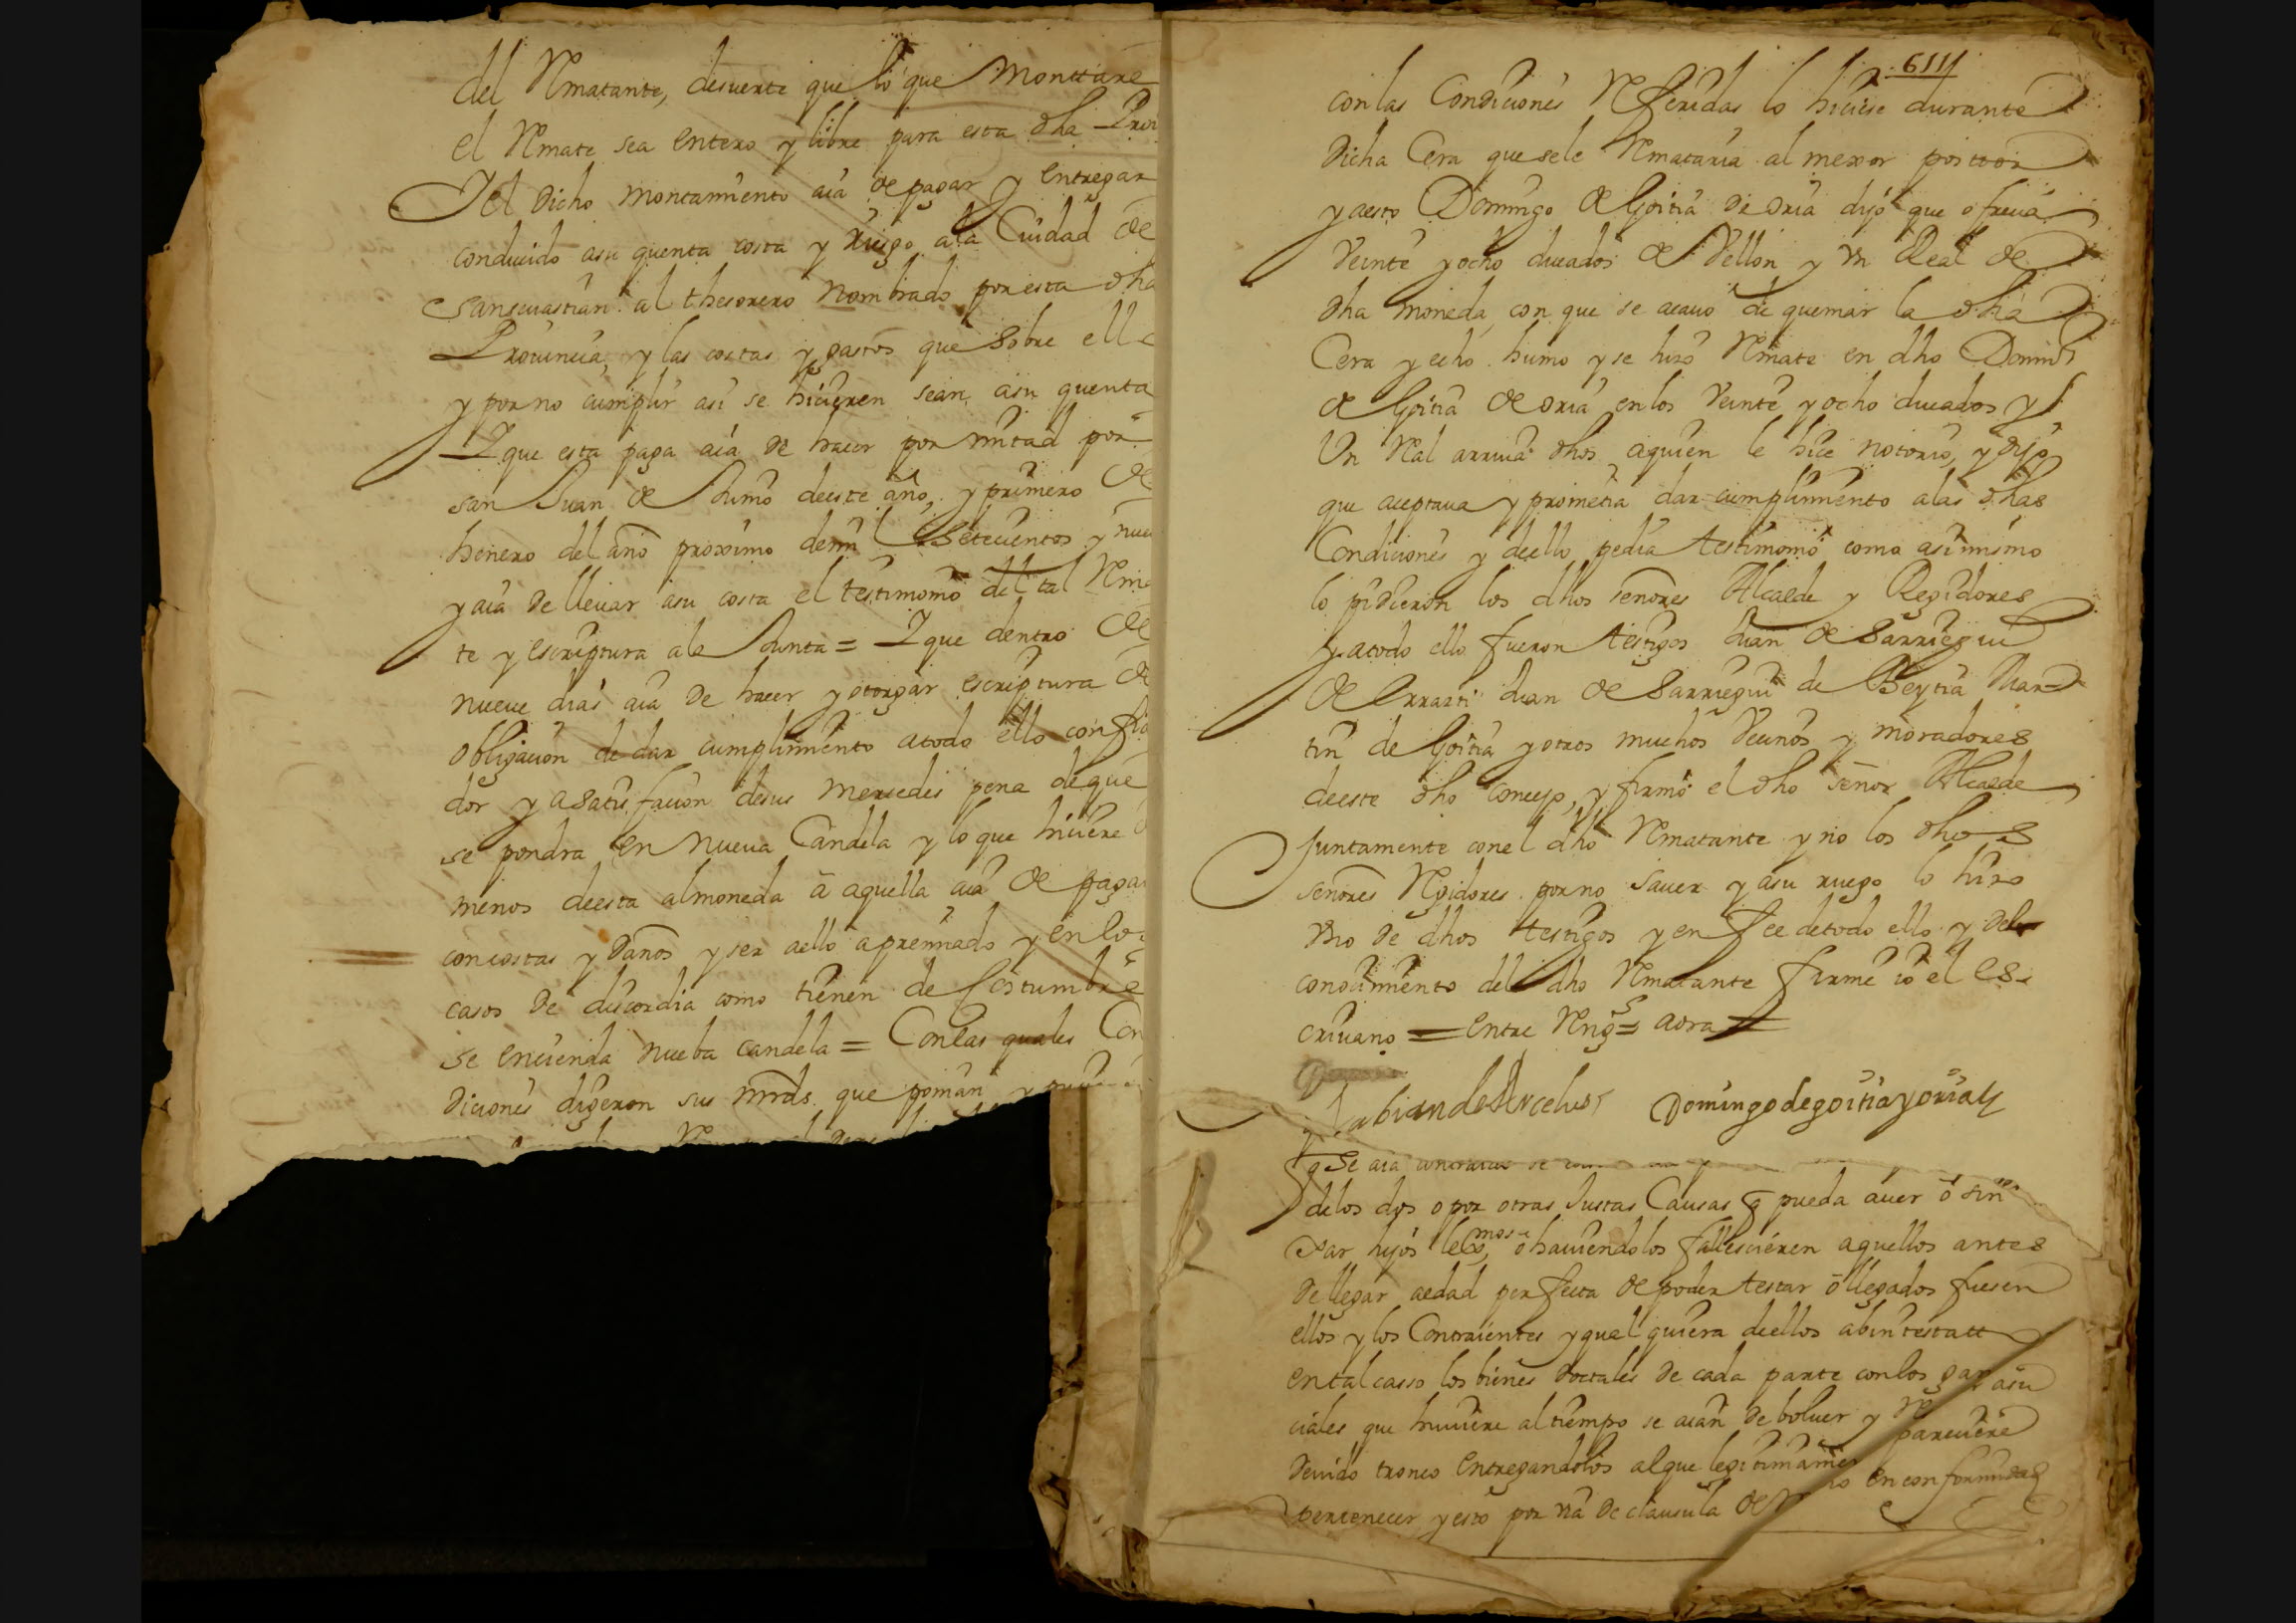 del Rmatante, desuerte que lo que Monttare
el Rmate sea entero y libre para esta dha Prov
Y el dicho montamiento aia de pagar y entregar
conducido asu quenta costa y riesgo ala Ciudad de
sanseuastian al thesorero nombrado por esta dha
Prouincia, y las costas y gastos que sobre ell
y por no cumplir asi se hicieren sean asu quenta
Y que esta paga aia de hacer por mitad por
san Juan de Junio deeste año, y primero de
henero del año proximo demil setecientos y nue
y aia de lleuar asu costa el testimonio del tal Rma
te y escriptura ala Junta = Y que dentro de
nueue dias aia de hacer y otorgar escriptura de
obligacion de dar cumplimiento atodo ello con fia
dor y asatisfacion desus mercedes pena deque
se pondra en nueua Candela y lo que huuiere
menos deesta almoneda ā aquella aia de paga
concostas y daños y ser aello apremiado y en lo
casos de discordia como tienen de costumbre
se encienda nueba candela = Conlas quales Con
diciones digeron sus mrds. que ponian y
6111
con las Condiciones Rferidas lo hiciese durante
dicha Cera que sele Rmataria al mexor postor
y aesto Domingo de Goitia de oria dijo que ofrecia
Veinte y ocho ducados de Vellon y Vn Real de
dha moneda, con que se acauo de quemar la dha
Cera y echo humo y se hizo Rmate en dho Doming
de Goitia de oria en los Veinte y ocho ducados y
Un Real arriua dhos aquien le hice notorio, y dijo
que aceptaua y prometia dar cumplimiento alas dhas
Condiciones y deello pedia testimonio como asimismo
lo pidieron los dhos señores Alcalde y Regidores
y atodo ello fueron testigos Juan de Sarriegui
de Errazti Juan de Sarriegui de Beytia Mar=
tin de Goitia y otros muchos Vecinos y moradores
deeste dho concejo, y firmo el dho señor Alcalde
Juntamente con el dho Rmatante y no los dhos
señores Rgidores por no sauer y asu ruego lo hizo
vno de dhos testigos y en fee detodo ello y del
conocimiento del dho Rmatante firme io el es
criuano = entre Rngs = aora =
Fabian de Arcelus Domingo de goitia y oria
q se aia
delos dos o por otras Justas Causas q pueda auer ó sin
dar hijos lexmos, o hauiendolos fallescieren aquellos antes
de llegar aedad perfecta de poder testar ó llegados fuesen
ellos y los Contraientes y qual quiera deellos abintestatt
en tal casso los bienes doctales de cada parte con los gan
ciales que huuiere al tiempo se aian de boluer y R asu
deuido tronco entregandolos al que legitimame pareciere
pertenecer y esto por via de clausula de en conformidad